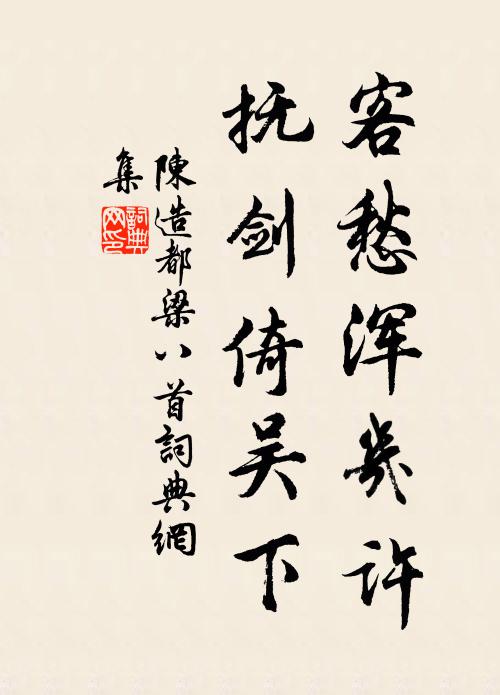 客愁浑几许
抚剑倚吴下
陳造都梁八首詞典網
集
詞典网印